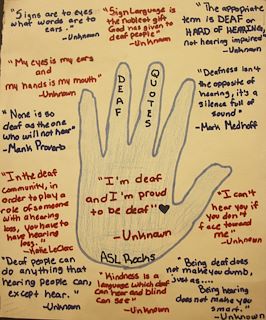 "Signs are to eyes
what words are to
ears."
-Unknown
"Sign Language is
the noblest gift
God has given to
deaf people"
-Unknown
"The appropriate
term is DEAF or
HARD of HEARING,
not hearing impaired"
-Unknown
"My eyes is my ears
and
my hands is my mouth"
-Unknown
DEAF
QUOTES
"Deafness isn't
the opposite of
hearing, it's a
silence full of
sound"
-Mark Medhoff
"None is so
deaf as the one
who will not hear"
-Mank Proverb
"In the deaf
community, in
order to play a
role of someone
with a hearing
loss, you have to
have hearing
loss."
-Katie LeClerc
"I'm deaf
and I'm proud
to be deaf" ♥
-Unknown
ASL Rocks
"I can't
hear you if
you don't
face toward
me"
-Unknown
"Deaf people can
do anything that
hearing people can,
except hear."
-Unknown
"Kindness is a
language which deaf
can hear and blind
can see"
-Unknown
"Being deaf does
not make you dumb,
just as....
Being hearing
does not make you
smart."
-Unknown